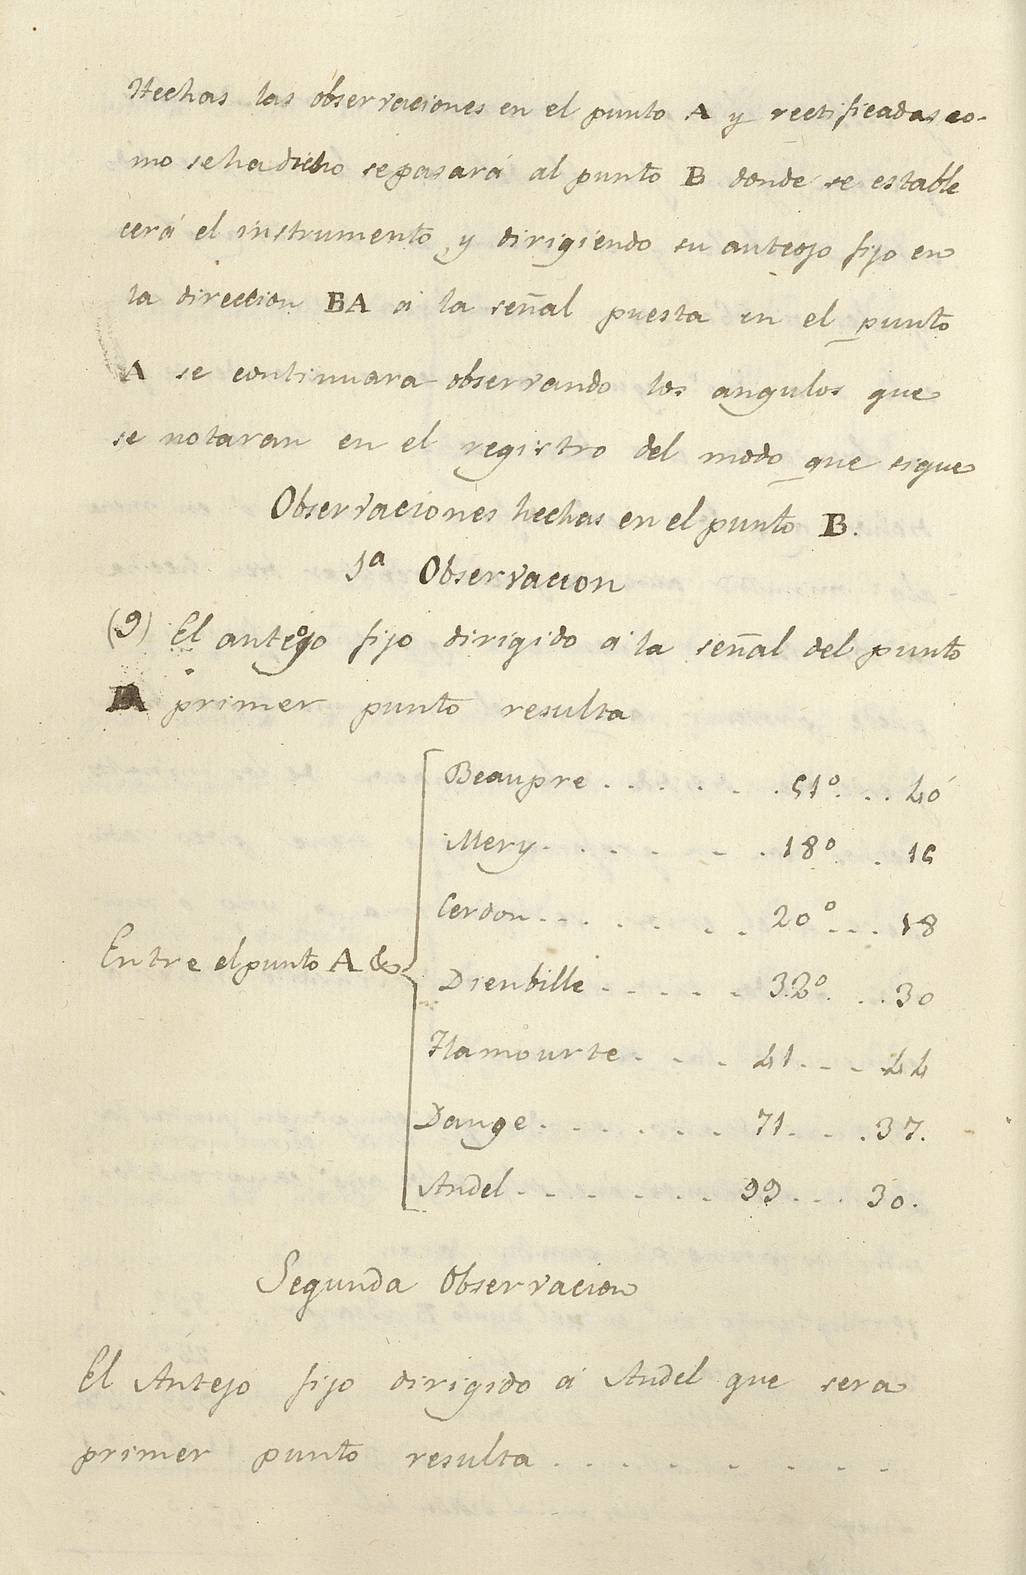 Hechas las observaciones en el punto A y rectificadas co-
mo se ha dicho se pasará al punto B donde se estable
cerá el instrumento y dirigiendo su anteojo fijo en
la direccion BA á la señal puesta en el punto
A se continuara observando los angulos que
se notaran en el registro del modo que sigue
Observaciones hechas en el punto B.
1ª Observacion
(9) El anteojo fijo dirigido á la señal del punto
A primer punto resulta
Beaupre . . . . . . 51° . . . 40'
Mery . . . . . . 18° . 16
Cerdon . . . . . . . 20° . . . 18
Entre el punto A &
Dienbille . . . . . 32° . . . 30
Hamourte . . . . 41 . . . 44
Dange . . . . . . . 71 . . . 37.
Andel . . . . . . . 99 . . . 30.
Segunda Observacion
El Antejo fijo dirigido á Andel que sera
primer punto resulta . . . . . . . . .